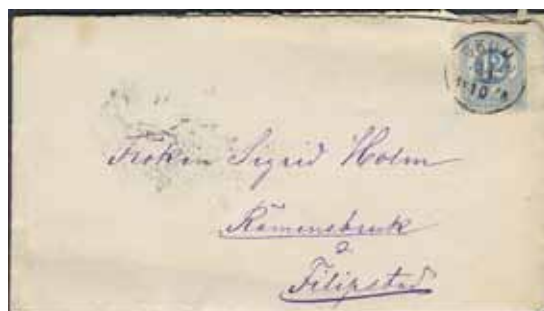 12
Fröken Sigrid Holm
Rämensbruk
Filipstad